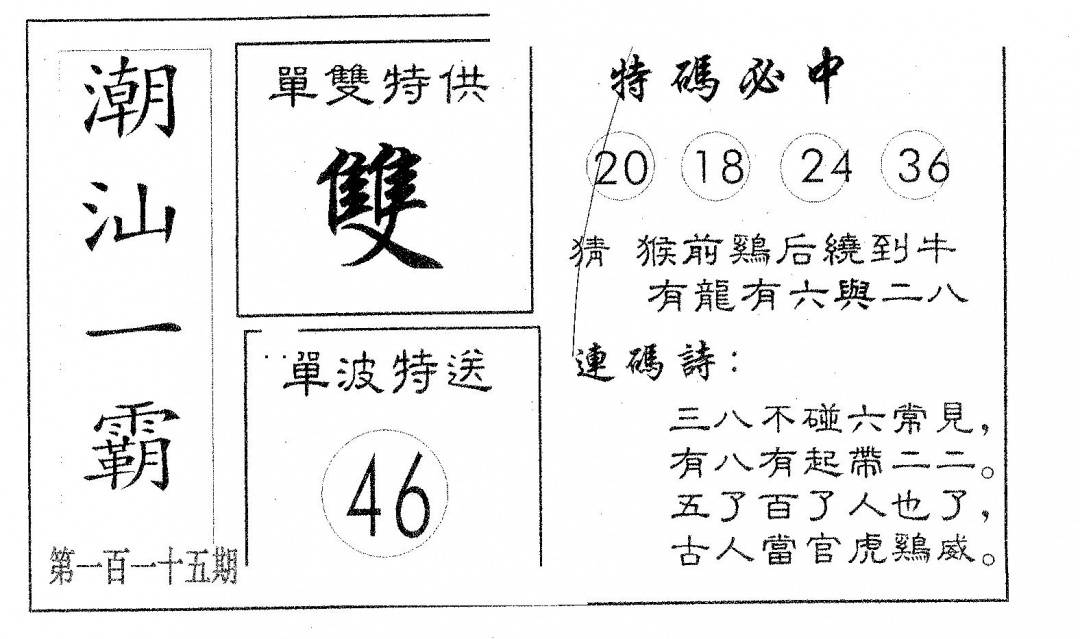 潮汕一霸
第一百一十五期
單雙特供
雙
單波特送
46
特碼必中
20 18 24 36
猜 猴前鷄后繞到牛
有龍有六與二八
連碼詩：
三八不碰六常見，
有八有起帶二二。
五了百了人也了，
古人當官虎鷄威。